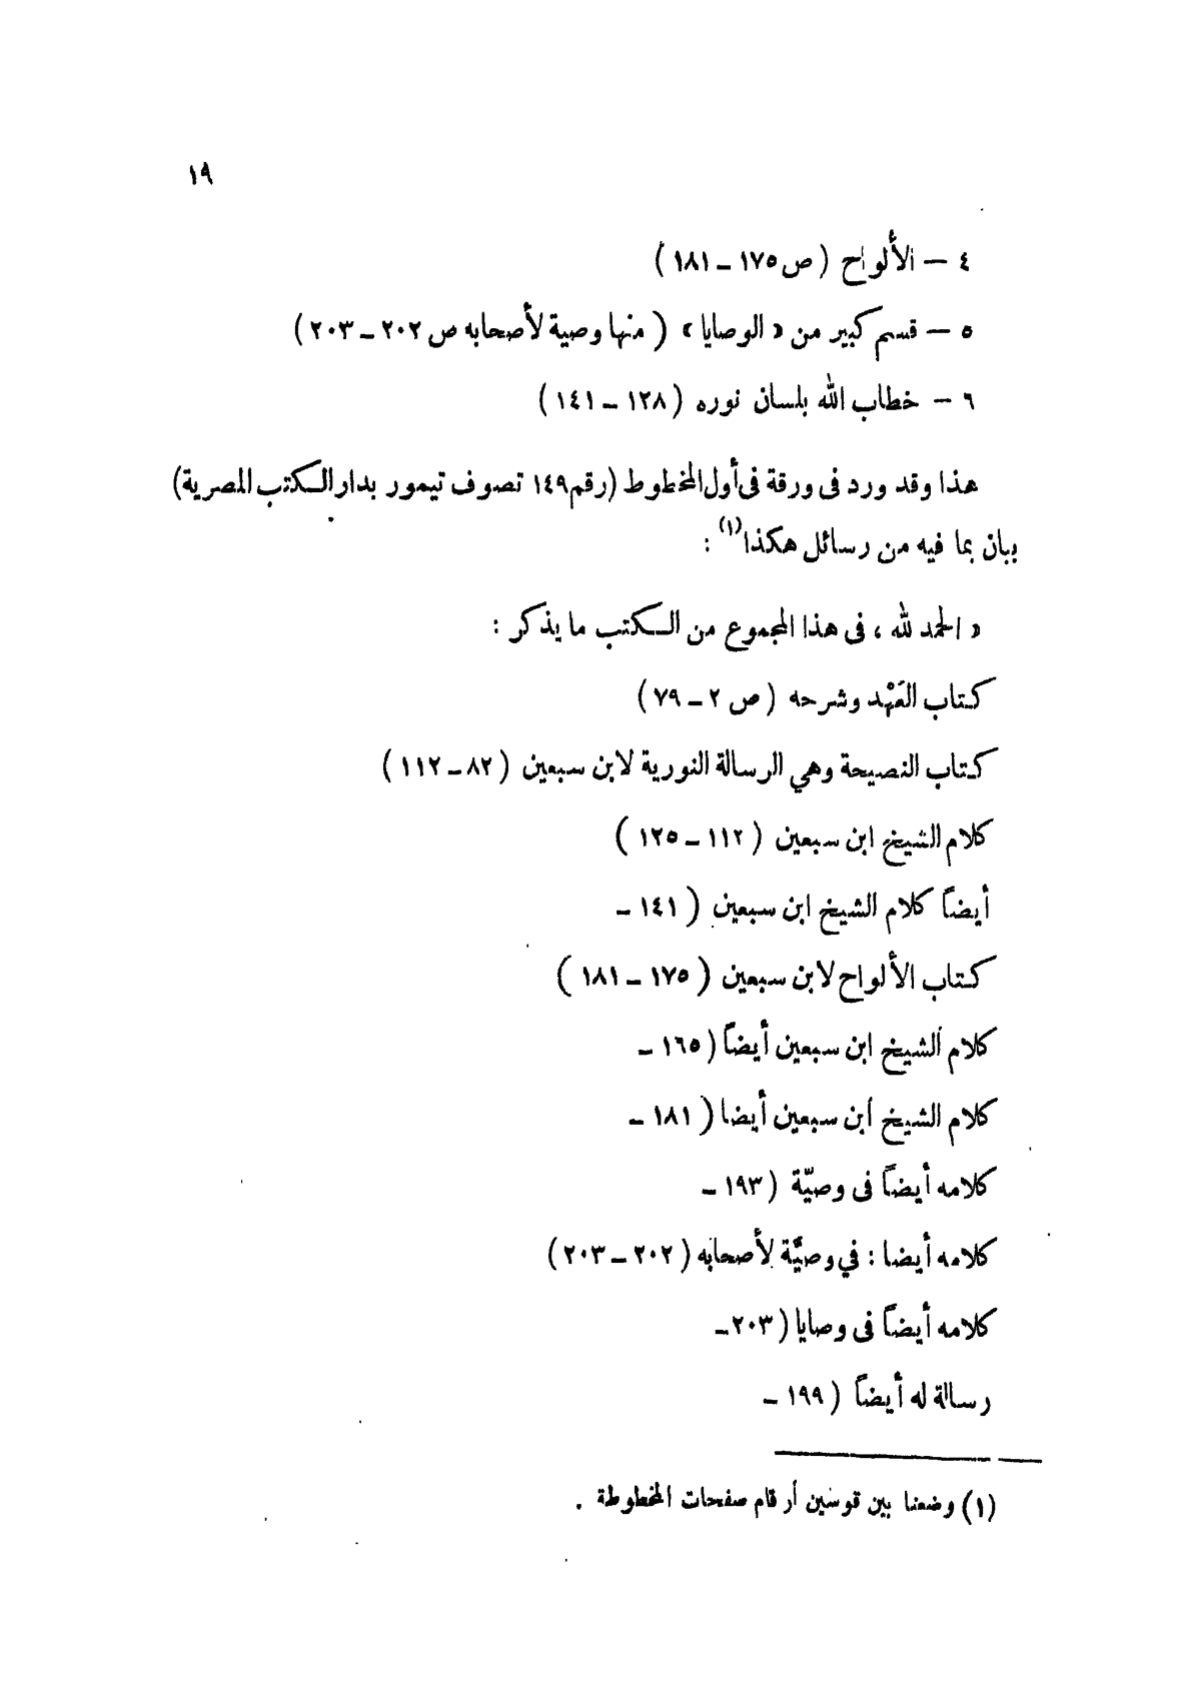 ١٩
٤ — الألواح ( ص ١٧٥ – ١٨١ )
٥ — قسم كبير من « الوصايا » ( منها وصية لأصحابه ص ٢٠٢ – ٢٠٣ )
٦ — خطاب الله بلسان نوره ( ١٢٨ – ١٤١ )
هذا وقد ورد فى ورقة فى أول المخطوط (رقم ١٤٩ تصوف تيمور بدار الكتب المصرية)
ببيان بما فيه من رسائل هكذا(١) :
« الحمد لله ، فى هذا المجموع من الكتب ما يذكر :
كتاب العَهْد وشرحه ( ص ٢ – ٧٩ )
كتاب النصيحة وهي الرسالة النورية لابن سبعين ( ٨٢ – ١١٢ )
كلام الشيخ ابن سبعين ( ١١٢ – ١٢٥ )
أيضاً كلام الشيخ ابن سبعين ( ١٤١ –
كتاب الألواح لابن سبعين ( ١٧٥ – ١٨١ )
كلام الشيخ ابن سبعين أيضاً ( ١٦٥ –
كلام الشيخ ابن سبعين أيضا ( ١٨١ –
كلامه أيضاً فى وصيّة ( ١٩٣ –
كلامه أيضا : في وصيَّة لأصحابه ( ٢٠٢ – ٢٠٣ )
كلامه أيضاً فى وصايا ( ٢٠٣ –
رسالة له أيضاً ( ١٩٩ –
(١) وضعنا بين قوسين أرقام صفحات المخطوطة .